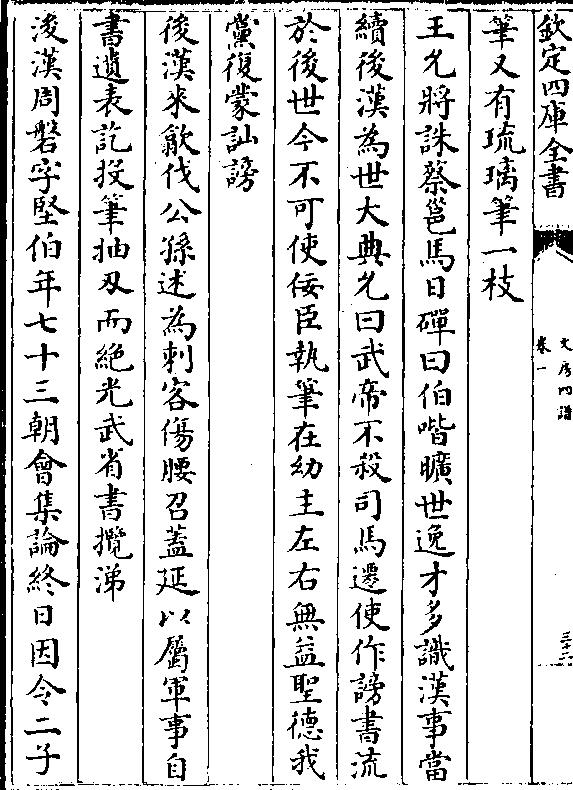 欽定四庫全書
文房四譜
卷一
三十二
筆又有琉璃筆一枝
王允將誅蔡邕馬日磾曰伯喈曠世逸才多識漢事當
續後漢為世大典允曰武帝不殺司馬遷使作謗書流
於後世今不可使佞臣執筆在幼主左右無益聖德我
黨復蒙訕謗
後漢來歙伐公孫述為刺客傷腰召蓋延以屬軍事自
書遺表訖投筆抽刃而絶光武省書攬涕
後漢周磐字堅伯年七十三朝會集論終日因令二子